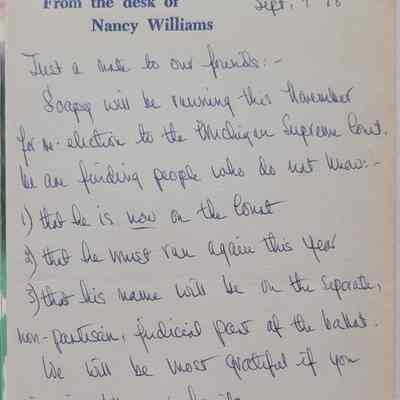 From the desk of
Nancy Williams
Sept. 
Just a note to our friends:-
Soapy will be running this November
for re-election to the Michigan Supreme Court.
We are finding people who do not know:-
1) that he is now on the Court
2) that he must run again this year
3) that his name will be on the separate,
non-partisan, judicial part of the ballot.
We will be most grateful if you